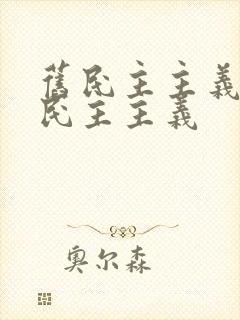 舊民主主義
民主主義
奥尔森